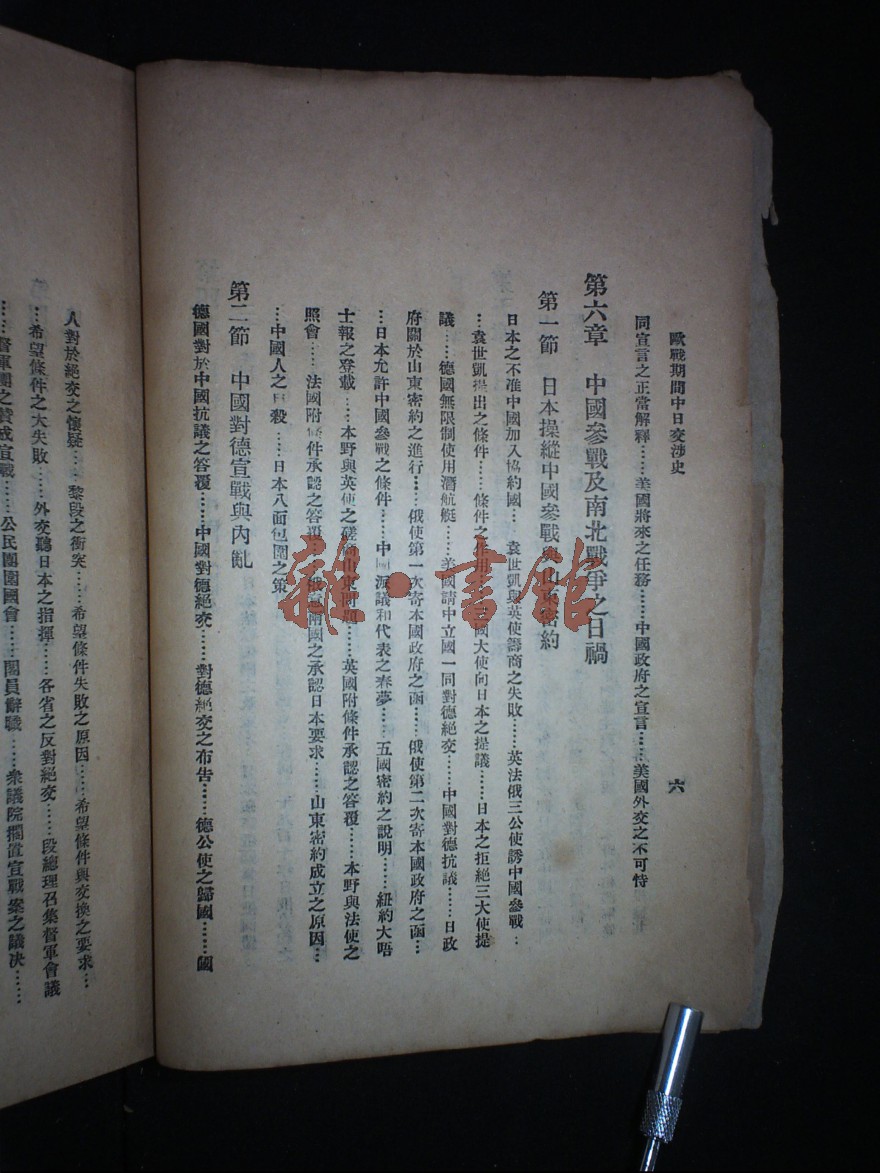 歐戰期間中日交涉史
六
同宣言之正當解釋……美國將來之任務……中國政府之宣言……美國外交之不可恃
第六章 中國參戰及南北戰爭之日禍
第一節 日本操縱中國參戰與山東密約
日本之不准中國加入協約國…袁世凱與英使籌商之失敗……英法俄三公使誘中國參戰…
…袁世凱提出之條件……條件之作用……國大使向日本之提議……日本之拒絕三大使提
議……德國無限制使用潛航艇……美國請中立國一同對德絕交……中國對德抗議……日政
府關於山東密約之進行……俄使第一次寄本國政府之函……俄使第二次寄本國政府之函…
…日本允許中國參戰之條件……中國派議和代表之春夢……五國密約之說明……紐約大晤
士報之登載……本野與英使之磋商山東問題……英國附條件承認之答覆……本野與法使之
照會……法國附條件承認之答覆……俄意兩國之承認日本要求……山東密約成立之原因…
…中國人之自殺……日本八面包圍之策
第二節 中國對德宣戰與內亂
德國對於中國抗議之答覆……中國對德絕交……對德絕交之布告……德公使之歸國……國
人對於絕交之懷疑……黎段之衝突……希望條件失敗之原因……希望條件與交換之要求…
…希望條件之大失敗……外交聽日本之指揮……各省之反對絕交……段總理召集督軍會議
……督軍團之贊成宣戰……公民團圍國會……閣員辭職……衆議院擱置宣戰案之議決……
雜·書館